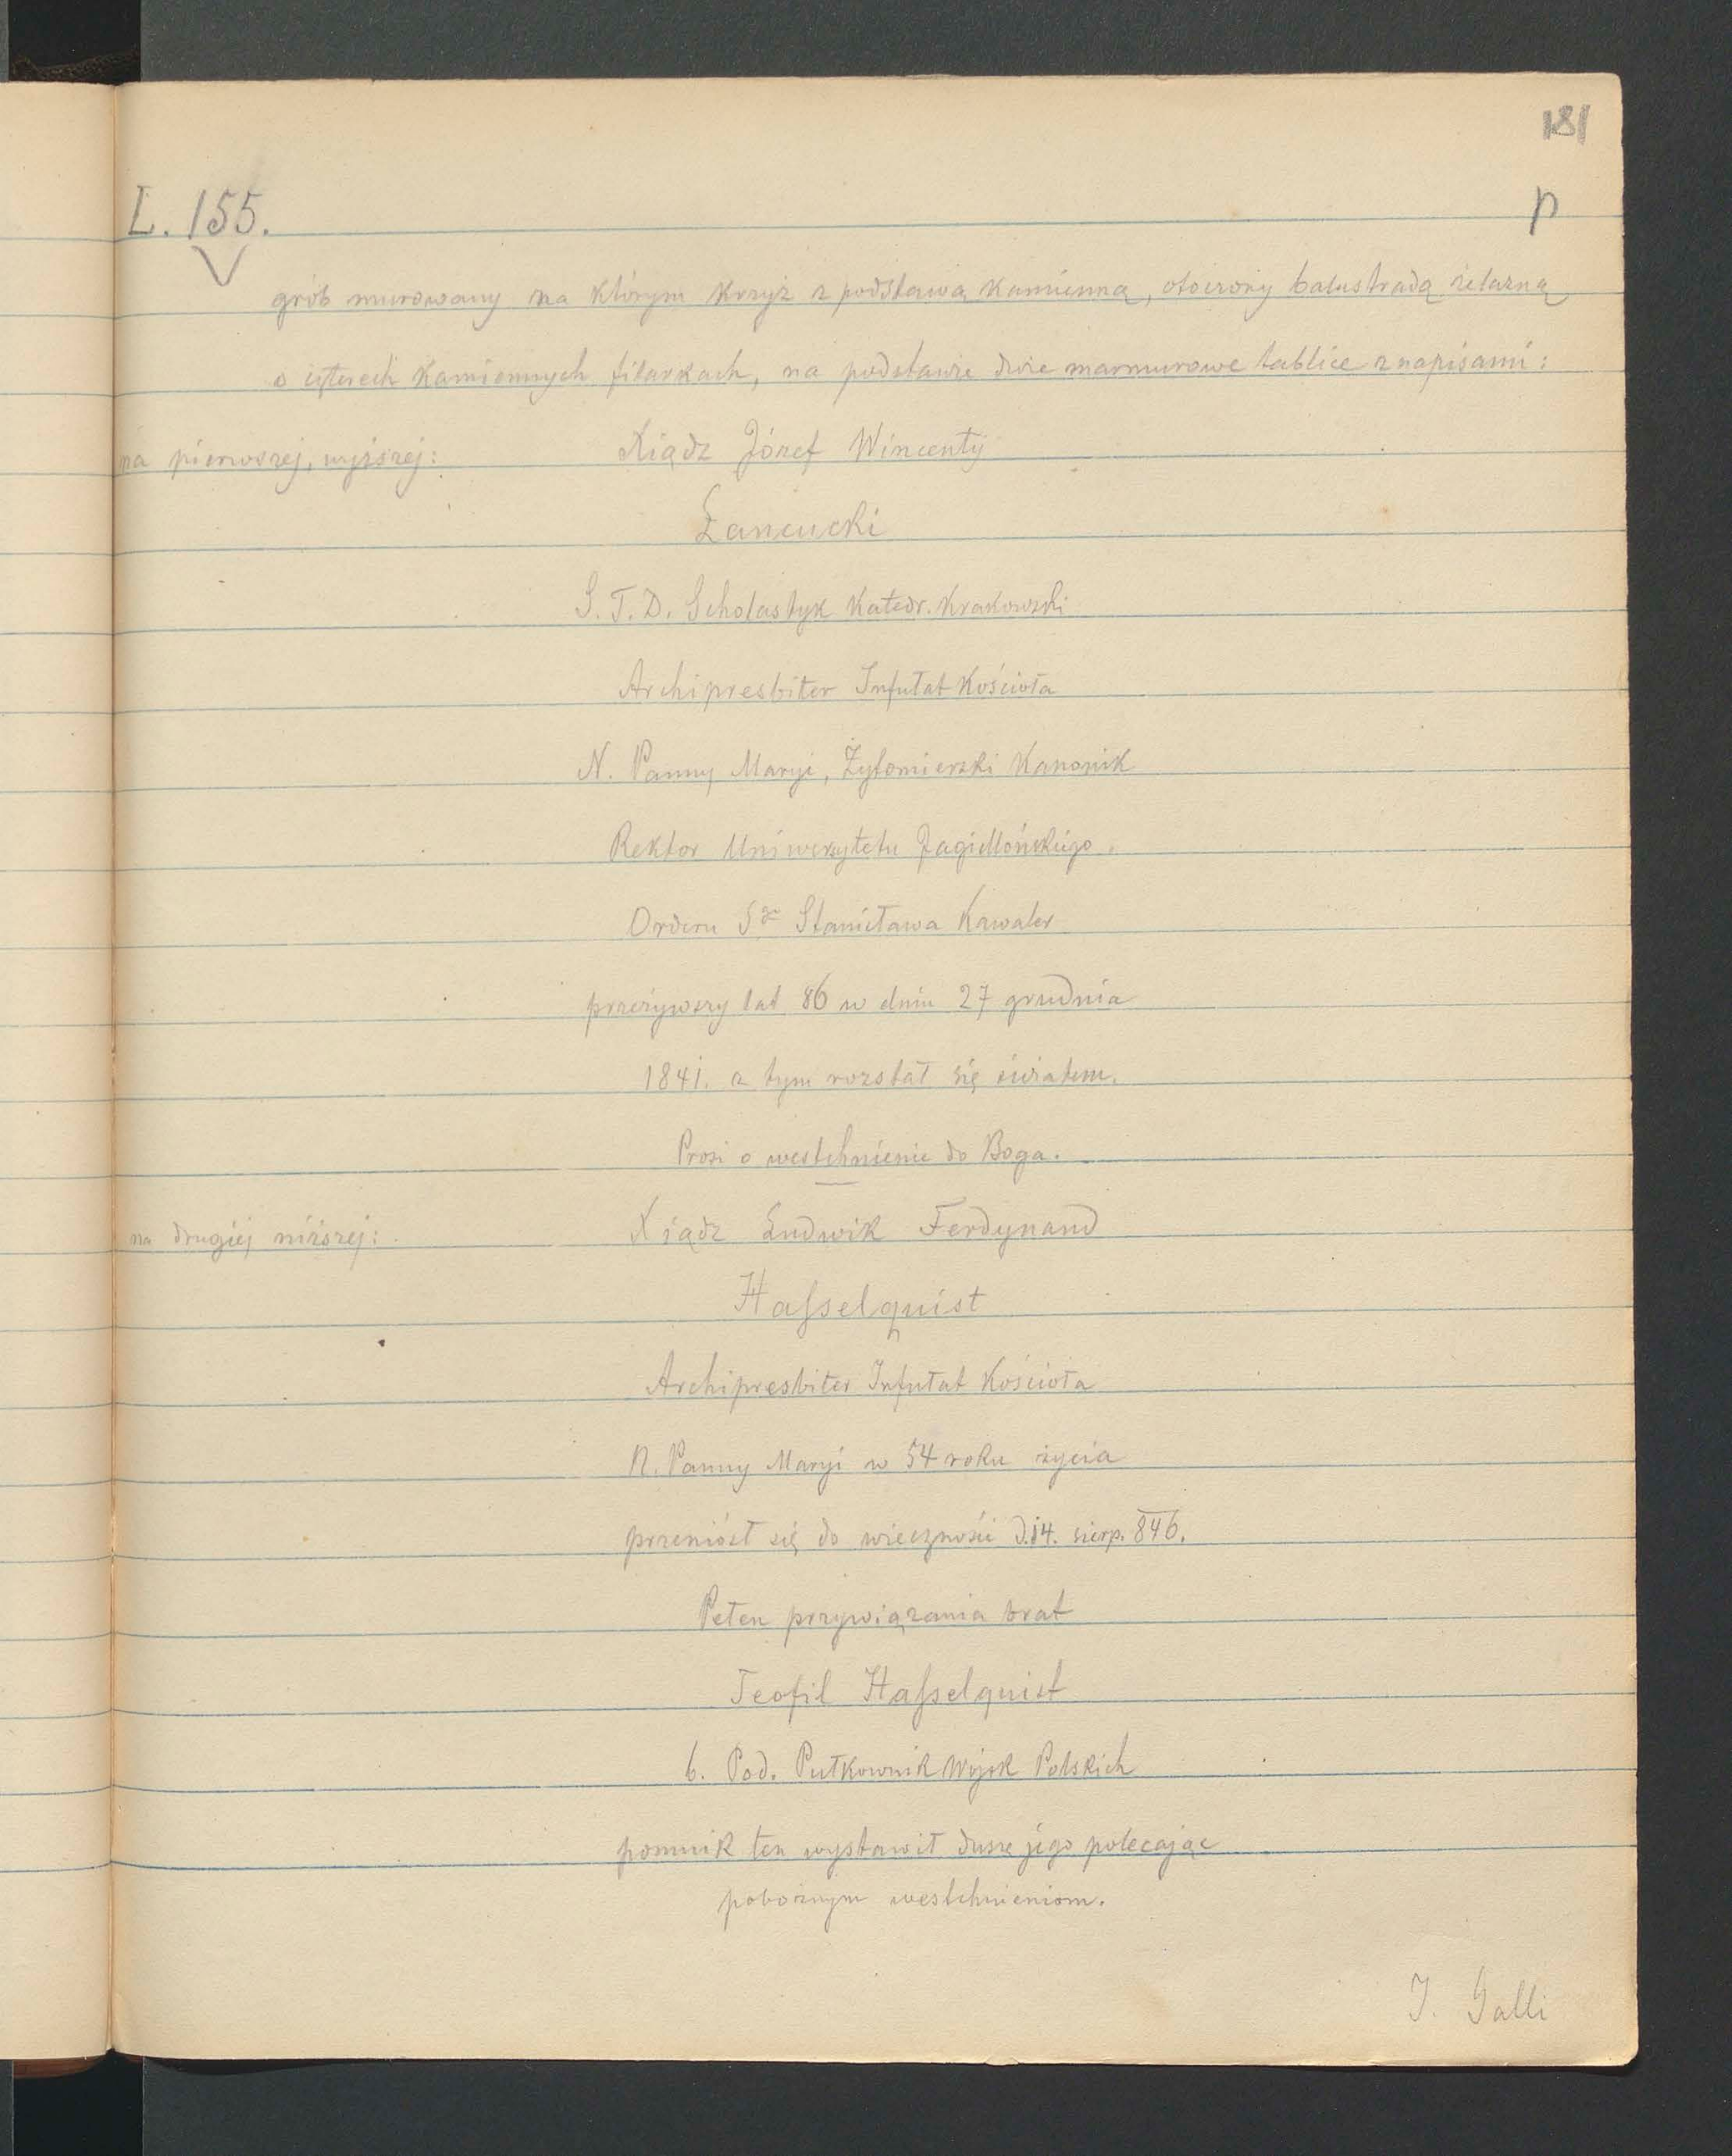 181
L. 155.
p
grób murowany na którym krzyż z podstawą kamienną, otoczony balustradą żelazną
o czterech kamiennych filarkach, na podstawie dwie marmurowe tablice z napisami:
na pierwszej, wyższej: Xiądz Józef Wincenty
Łancucki
S. T. D. Scholastyk Katedr. Krakowski
Archipresbiter Infułat Kościoła
N. Panny Maryi, Żytomierski Kanonik
Rektor Uniwersytetu Jagiellońskiego.
Orderu Sgo Stanisława Kawaler
przeżywszy lat 86 w dniu 27 grudnia
1841. z tym rozstał się światem.
Prosi o westchnienie do Boga.
na drugiej niższej: Xiądz Ludwik Ferdynand
Haſselquist
Archipresbiter Infułat Kościoła
N. Panny Maryi w 54 roku życia
przeniósł się do wieczności d. 14. sierp. 846.
Pełen przywiązania brat
Teofil Haſselquist
b. Pod. Pułkownik Wojsk Polskich
pomnik ten wystawił duszę jego polecając
pobożnym westchnieniom.
J. Galli